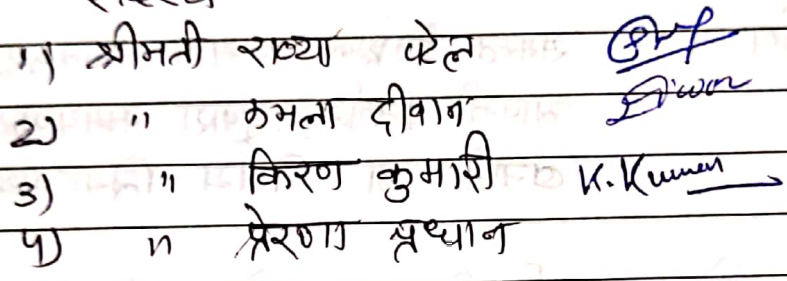 1) श्रीमती राव्या पटेल
2) " कमला दीवान Diwan
3) " किरण कुमारी K. Kumari
4) " प्रेरणा प्रधान